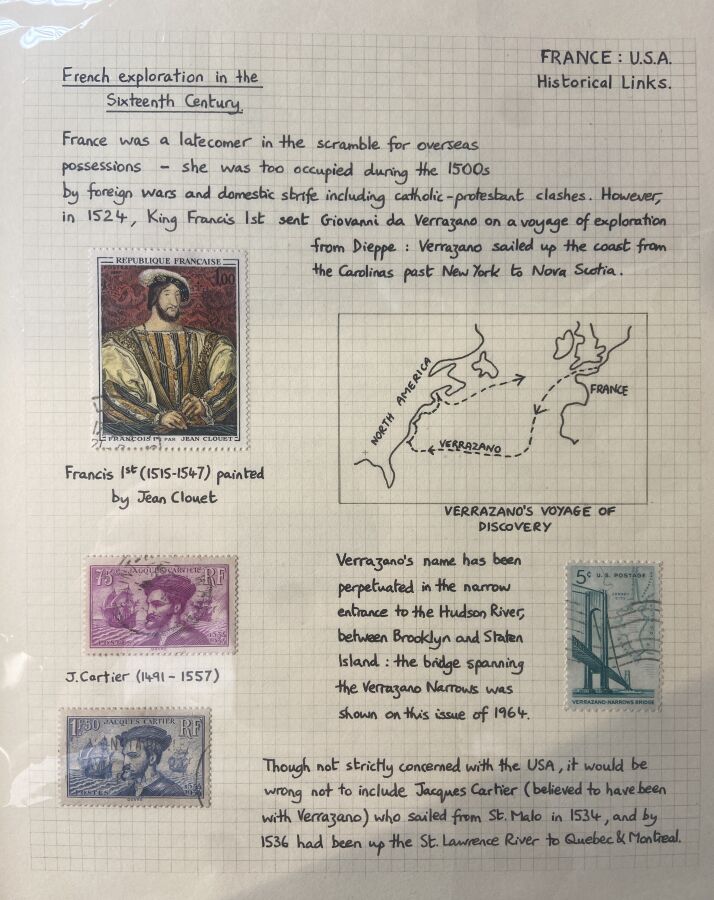 FRANCE : U.S.A.
Historical Links.
French exploration in the
Sixteenth Century.
France was a latecomer in the scramble for overseas
possessions – she was too occupied during the 1500s
by foreign wars and domestic strife including catholic-protestant clashes. However,
in 1524, King Francis 1st sent Giovanni da Verrazano on a voyage of exploration
from Dieppe : Verrazano sailed up the coast from
the Carolinas past New York to Nova Scotia.
REPUBLIQUE FRANCAISE
POSTES
1,00
FRANCOIS Ier PAR JEAN CLOUET
Francis 1st (1515-1547) painted
by Jean Clouet
NORTH AMERICA
FRANCE
VERRAZANO
VERRAZANO'S VOYAGE OF
DISCOVERY
75c JACQUES CARTIER RF
POSTES
1534
J.Cartier (1491 – 1557)
1F50 JACQUES CARTIER RF
POSTES
Verrazano's name has been
perpetuated in the narrow
entrance to the Hudson River,
between Brooklyn and Staten
Island : the bridge spanning
the Verrazano Narrows was
shown on this issue of 1964.
5¢ U.S. POSTAGE
VERRAZANO-NARROWS BRIDGE
Though not strictly concerned with the USA, it would be
wrong not to include Jacques Cartier (believed to have been
with Verrazano) who sailed from St. Malo in 1534, and by
1536 had been up the St. Lawrence River to Quebec & Montreal.